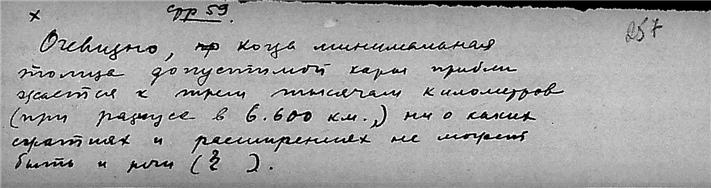 х стр 59.
257
Очевидно, когда минимальная
толща допустимой коры прибли
жается к трем тысячам километров
(при радиусе в 6.600 км.,) ни о каких
сжатиях и расширениях не может
быть и речи ( ).